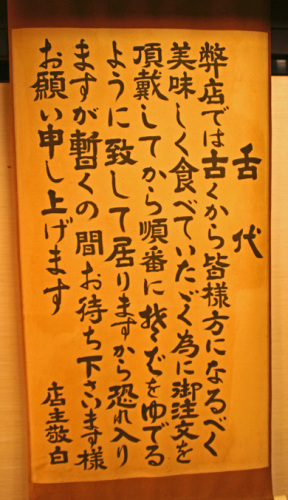 舌代
弊店では古くから皆様方になるべく
美味しく食べていたゞく為に御注文を
頂戴してから順番にそばをゆでる
ように致して居りますから恐れ入り
ますが暫くの間お待ち下さいます様
お願い申し上げます
店主敬白